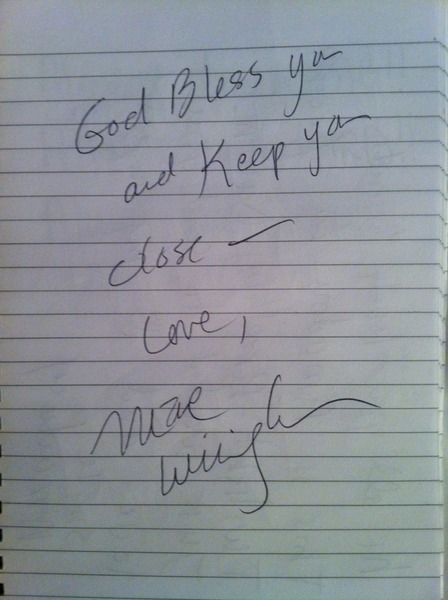 God Bless you
and Keep you
close —
Love,
Mae